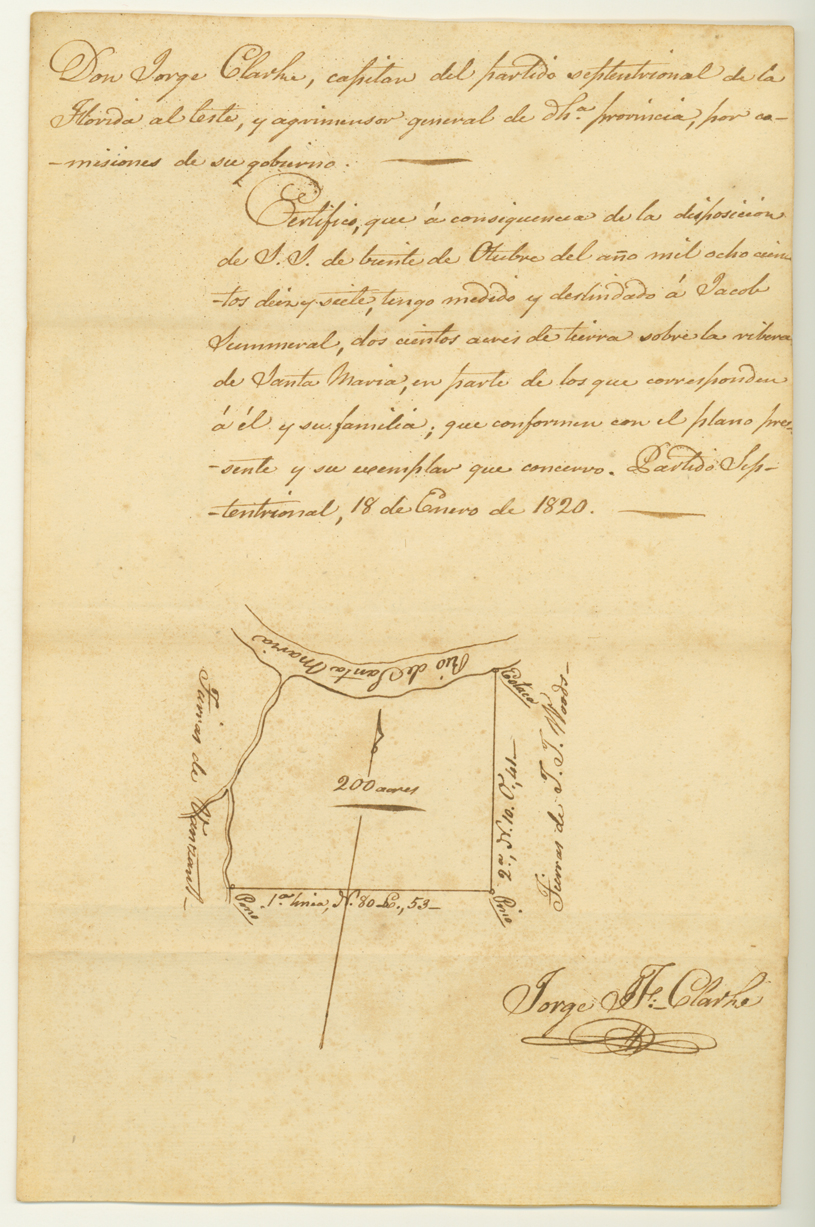 Don Jorge Clarke, capitan del partido septentrional de la
Florida al leste, y agrimensor general de dh.ª provincia, por co-
-misiones de su gobierno.
Certifico, que á consiquencia de la disposicion
de S. S. de viente de Otubre del año mil ocho cien-
-tos diez y siete, tengo medido y deslindado á Jacob
Summeral, dos cientos acres de tierra sobre la ribera
de Santa Maria, en parte de los que corresponden
á él y su familia; que conformen con el plano pre-
-sente y su exemplar que concervo. Partido Sep-
-tentrional, 18 de Enero de 1820.
Rio de Santa Maria
Estaca
Tierras de
Tierras de T. T. Woods-
200 acres
2.ª, N. 10. O., 41-
Pino
1.ª linea, N. 80 E., 53-
Pino
Jorge J. F. Clarke